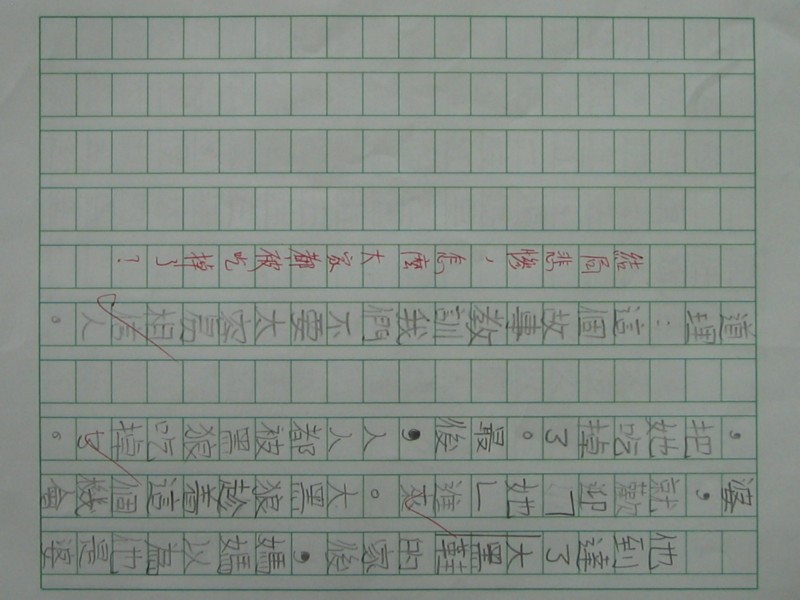 他到達了大黑韓的家後，媽媽以為他是婆
婆，就歡迎「她」進來。大黑狼趁着這個機會
，把她吃掉了。最後，人人都被黑狼吃掉了。
道理：這個故事教訓我們不要太容易相信人。
結局悲慘，怎麼大家都被吃掉了？